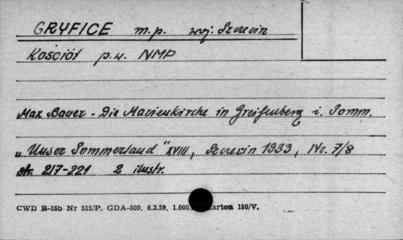 GRYFICE m.p. woj. Szczecin
Kościół p.w. NMP
Max Bauer - Die Marienkirche in Greifenberg i. Pomm.
„Unser Pommerland" XVIII, Szczecin 1933, Nr. 7/8
str. 217-221 2 ilustr.
CWD B-15b Nr 515/P. GDA-509, 6.3.59, 1.000, karton 180/V.